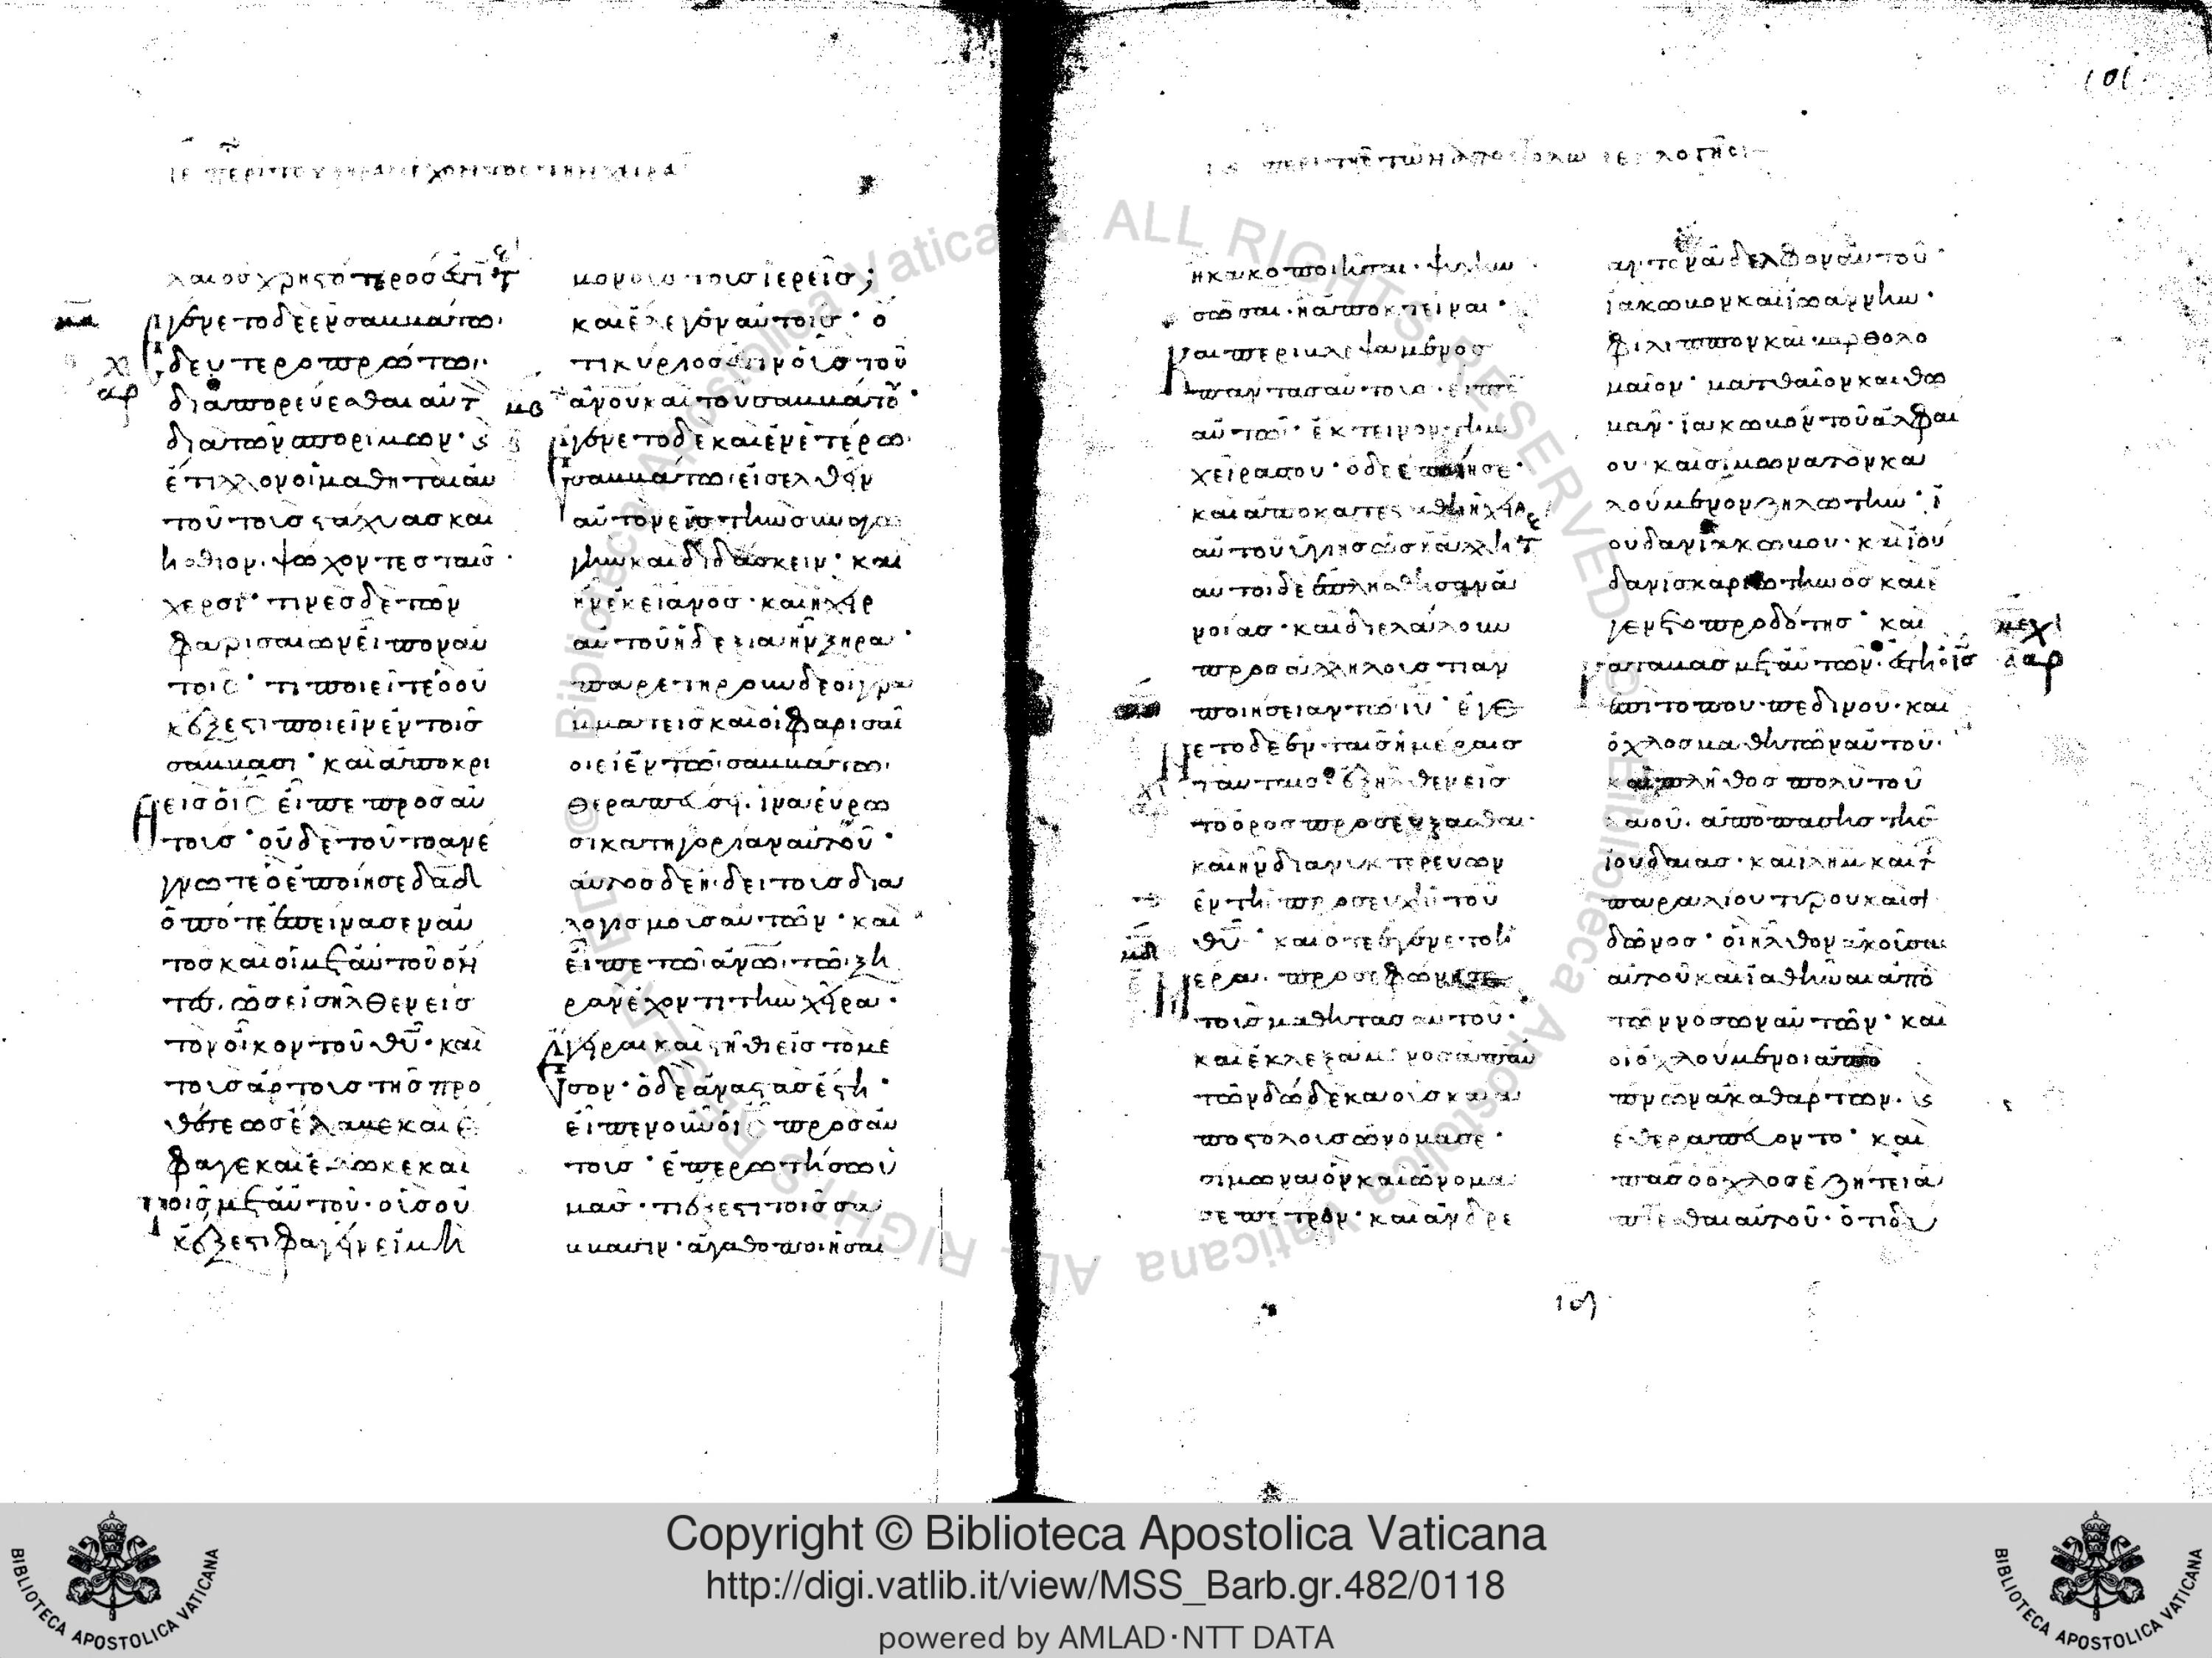 ΙΕ ΠΕΡΙ ΤΟΥ ΞΗΡΑΝ ΕΧΟΝΤΟΣ ΤΗΝ ΧΕΙΡΑ
λαιὸς χρηστότερός ἐστι
μα
ἐγένετο δὲ ἐν σαββάτω
δευτεροπρώτω
αρ
διαπορεύεσθαι αὐτ
διὰ τῶν σπορίμων· κ
ἔτιλλον οἱ μαθηταὶ αὐ
τοῦ τοὺς στάχυας καὶ
ἤσθιον. ψώχοντες ταῖς
χερσί· τινὲς δὲ τῶν
φαρισαίων εἶπον αὐ
τοῖς· τί ποιεῖτε ὃ οὐ
κ ἔξεστι ποιεῖν ἐν τοῖς
σάββασι· καὶ ἀποκρι
θεὶς ὁ ις εἶπε πρὸς αὐ
τούς· οὐδὲ τοῦτο ἀνέ
γνωτε ὃ ἐποίησε δαδ
ὁπότε ἐπείνασεν αὐ
τὸς καὶ οἱ μετ αὐτοῦ ὄν
τες. ὡς εἰσῆλθεν εἰς
τὸν οἶκον τοῦ θυ· καὶ
τοὺς ἄρτους τῆς προ
θέσεως ἔλαβε καὶ ἔ
φαγε καὶ ἔδωκε καὶ
τοῖς μετ αὐτοῦ· οὓς οὐ
κ ἔξεστι φαγεῖν εἰ μὴ
μόνους τοὺς ἱερεῖς;
καὶ ἔλεγεν αὐτοῖς· ὅ
τι κύριός ἐστιν ὁ υἱὸς τοῦ
ανου καὶ τοῦ σαββάτου·
μβ
ἐγένετο δὲ καὶ ἐν ἑτέρω
σαββάτω εἰσελθεῖν
αὐτὸν εἰς τὴν συναγω
γὴν καὶ διδάσκειν· καὶ
ἦν ἐκεῖ ανος· καὶ ἡ χεὶρ
αὐτοῦ ἡ δεξιὰ ἦν ξηρά·
παρετήρουν δὲ οἱ γρα
μματεῖς καὶ οἱ φαρισαῖ
οι εἰ ἐν τῶ σαββάτω
θεραπεύσει. ἵνα εὕρω
σι κατηγορίαν αὐτοῦ·
αὐτὸς δὲ ἤδει τοὺς δια
λογισμοὺς αὐτῶν· καὶ
εἶπε τῶ ανω τῶ ξη
ρὰν ἔχοντι τὴν χεῖρα·
ἔγειραι καὶ στῆθι εἰς τὸ μέ
σον· ὁ δὲ ἀναστὰς ἔστη·
εἶπεν οὖν ὁ ις πρὸς αὐ
τούς· ἐπερωτήσω ὑ
μᾶς· τί ἔξεστι τοῖς σά
ββασιν· ἀγαθοποιῆσαι
101
Ις ΠΕΡΙ ΤΗΣ ΤΩΝ ΑΠΟΣΤΟΛΩΝ ΕΚΛΟΓΗΣ
ἢ κακοποιῆσαι· ψυχὴν
σῶσαι· ἢ ἀποκτεῖναι·
καὶ περιβλεψάμενος
πάντας αὐτοὺς· εἶπεν
αὐτῶ· ἔκτεινον τὴν
χεῖρά σου· ὁ δὲ ἐποίησε·
καὶ ἀποκατεστάθη ἡ χεὶρ
αὐτοῦ ὑγιὴς ὡς ἡ ἄλλη
αὐτοὶ δὲ ἐπλήσθησαν ἀ
νοίας· καὶ διελάλουν
πρὸς ἀλλήλους τί ἂν
ποιήσειαν τῶ ιυ· ἐγέ
νετο δὲ ἐν ταῖς ἡμέραις
ταύταις· ἐξῆλθεν εἰς
τὸ ὄρος προσεύξασθαι·
καὶ ἦν διανυκτερεύων
ἐν τῆ προσευχῆ τοῦ
θυ· καὶ ὅτε ἐγένετο ἡ
μδ
μέρα. προσεφώνησε
τοὺς μαθητὰς αὐτοῦ·
καὶ ἐκλεξάμενος ἀπ αὐ
τῶν δώδεκα οὓς καὶ ἀ
ποστόλους ὠνόμασε·
σίμωνα ὃν καὶ ὠνόμα
σε πέτρον· καὶ ἀνδρέ
αν τὸν ἀδελφὸν αὐτοῦ·
ἰάκωβον καὶ ἰωάννην·
φίλιππον καὶ βαρθολο
μαῖον· ματθαῖον καὶ θω
μᾶν· ἰάκωβον τοῦ ἀλφαί
ου· καὶ σίμωνα τὸν κα
λούμενον ζηλωτὴν· ἰ
ούδαν ἰακώβου· καὶ ἰού
δαν ἰσκαριώτην ὃς καὶ ἐ
γένετο προδότης· καὶ
καταβὰς μετ αὐτῶν· ἔστη ὁ ις
αρ
ἐπὶ τόπου πεδινοῦ· καὶ
ὄχλος μαθητῶν αὐτοῦ·
καὶ πλῆθος πολὺ τοῦ
λαοῦ. ἀπὸ πάσης τῆς
ἰουδαίας· καὶ ιλημ καὶ τ
παραλίου τύρου καὶ σι
δῶνος· οἳ ἦλθον ἀκοῦσαι
αὐτοῦ καὶ ἰαθῆναι ἀπὸ
τῶν νόσων αὐτῶν· καὶ
οἱ ὀχλούμενοι ἀπὸ
πνων ἀκαθάρτων. κ
ἐθεραπεύοντο· καὶ
πᾶς ὁ ὄχλος ἐζήτει ἅ
πτεσθαι αὐτοῦ· ὅτι δύ
109
Copyright © Biblioteca Apostolica Vaticana
http://digi.vatlib.it/view/MSS_Barb.gr.482/0118
powered by AMLAD·NTT DATA
BIBLIOTECA APOSTOLICA VATICANA
BIBLIOTECA APOSTOLICA VATICANA
© Biblioteca Apostolica Vaticana ALL RIGHTS RESERVED
© Biblioteca Apostolica Vaticana ALL RIGHTS RESERVED